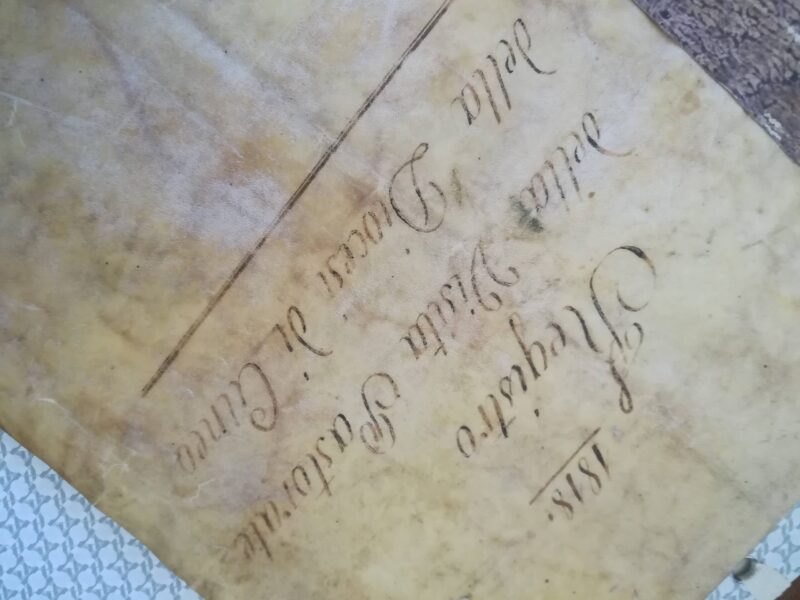 1818.
Registro
della Visita Pastorale
della Diocesi di Cuneo